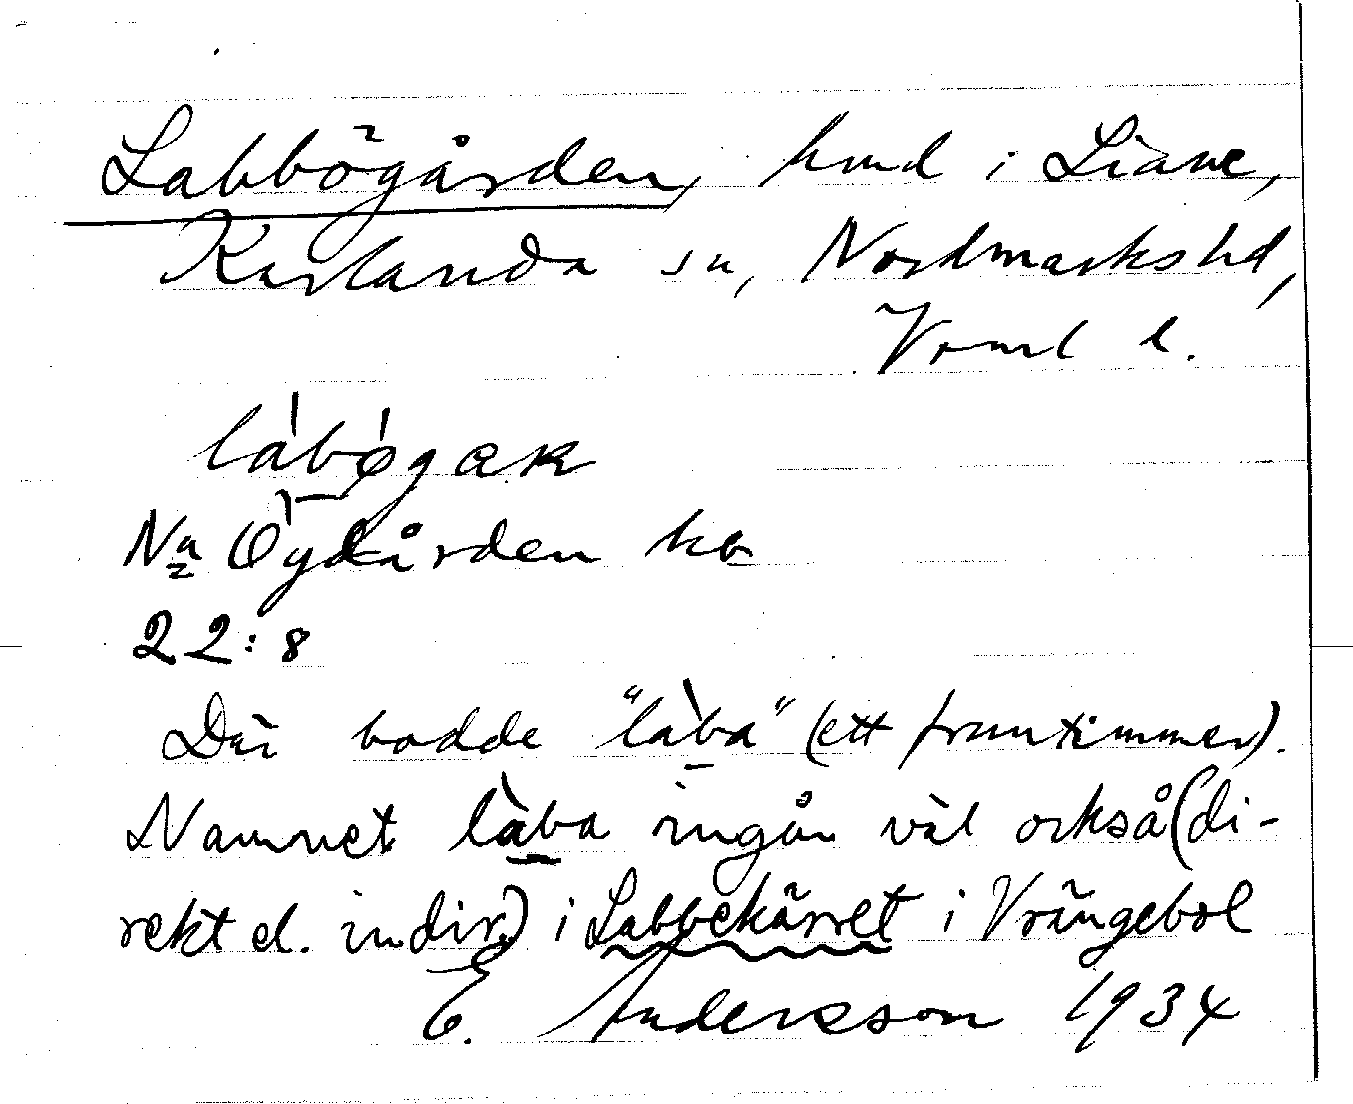 Labbögården, hmd i Liane,
Karlanda sn, Nordmarks hd,
Värml l.
lábøgaʀ
Nu Öygården kb
22:8
Där bodde "làba" (ett fruntimmer).
Namnet làba ingår väl också (di-
rekt el. indir.) i Labbekärret i Vrängebol
E. Andersson 1934